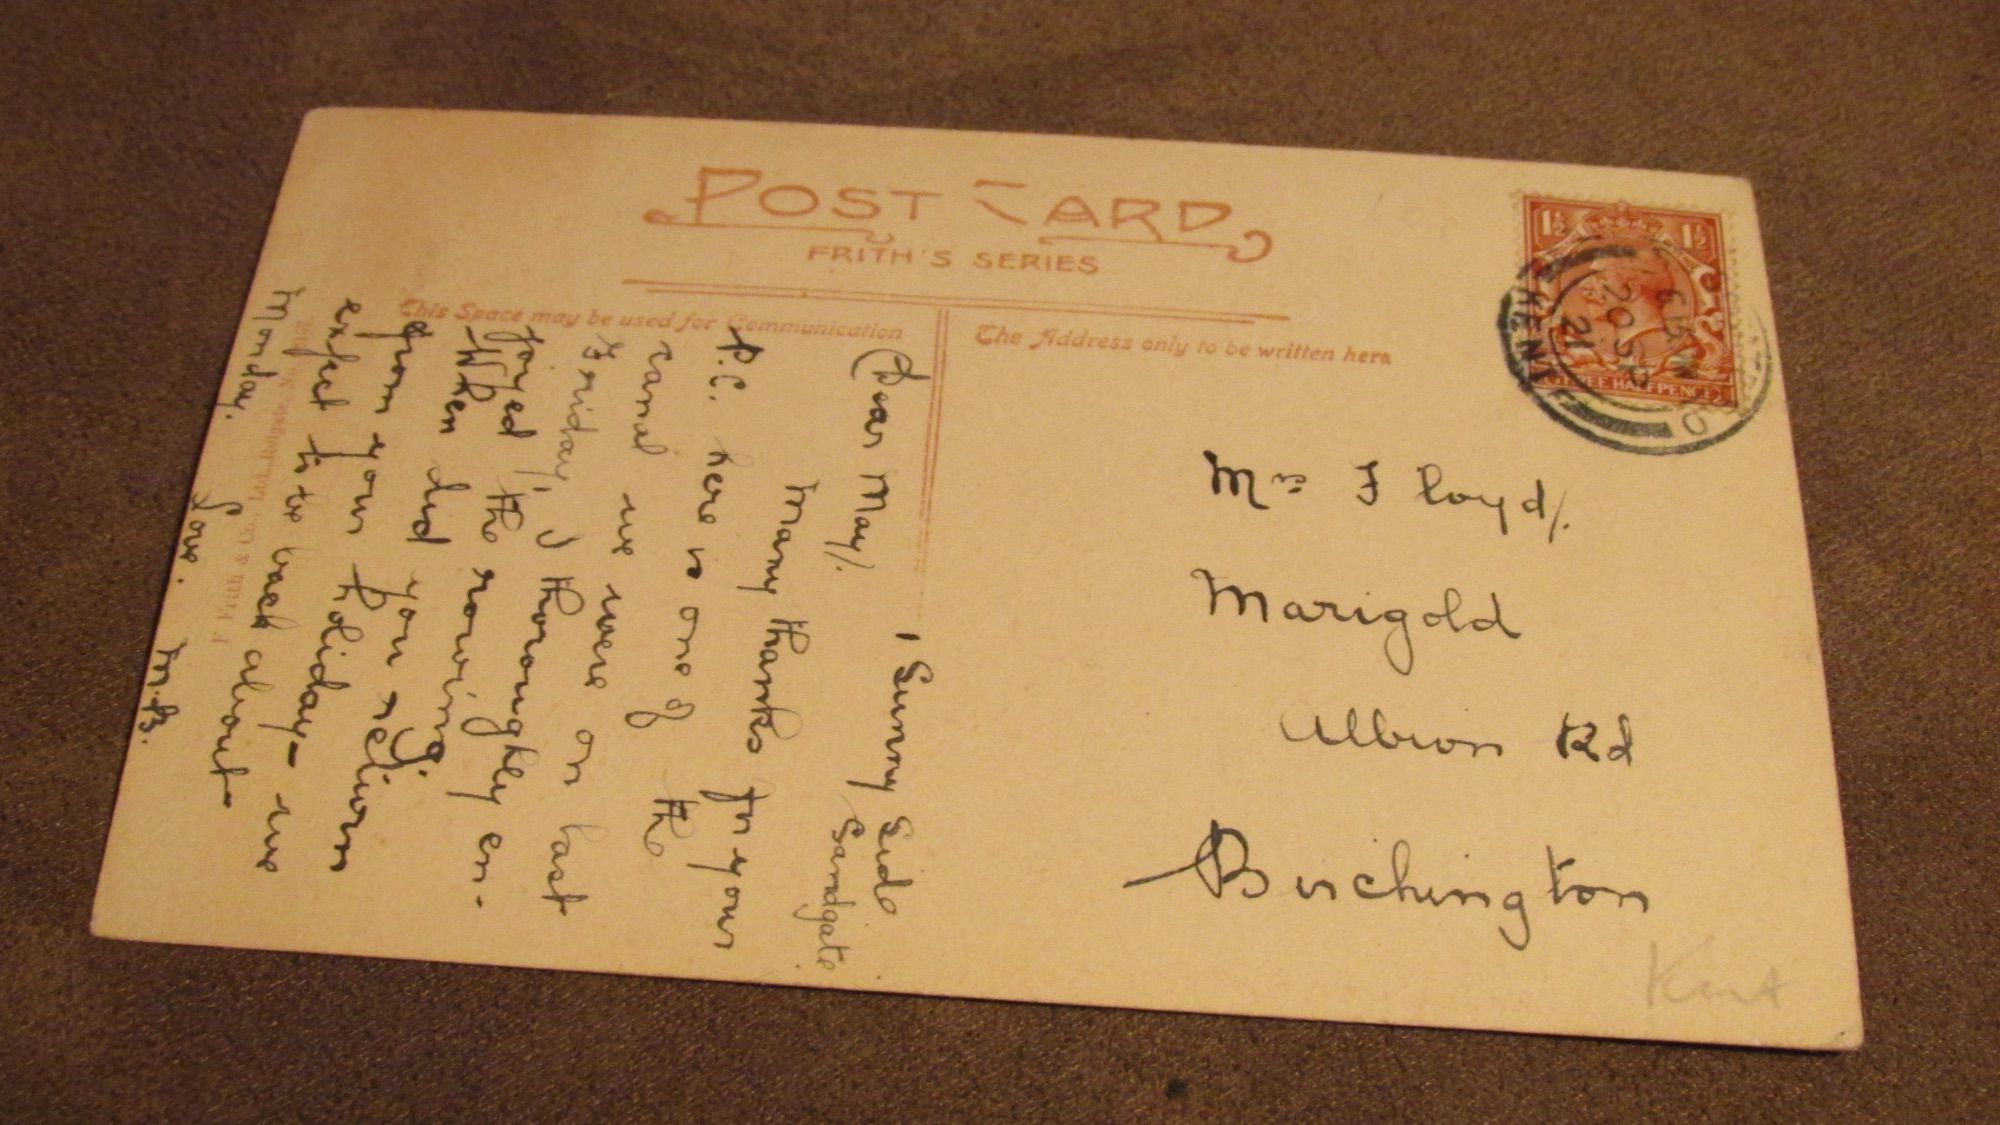 POST CARD
FRITH'S SERIES
This Space may be used for Communication
The Address only to be written here
1½ 1½
THREE HALFPENCE
20 SP
21
KENT
1 Sunny Side
Sandgate
Dear May/.
Many thanks for your
P.C. here is one of the
canal we were on last
Friday, I thoroughly en-
joyed the rowing.
When did you return
from your holiday - we
expect to be back about
Monday.
Love. M.B.
F. Frith & Co., Ltd., Reigate, No.
Mrs Floyd/.
Marigold
Albion Rd
Birchington
Kent